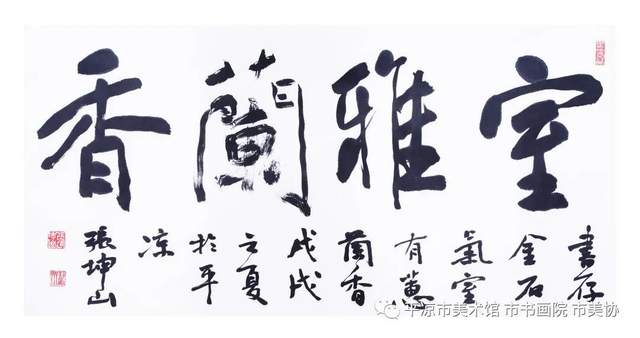 室雅蘭香
書存
金石
氣室
有蕙
蘭香
戊戌
之夏
於平
凉
張坤山
平凉市美术馆 市书画院 市美协